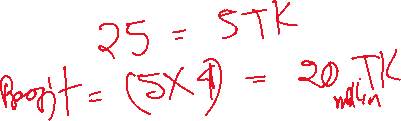 25 = 5TK
Profit = (5X4) = 20 TK
million